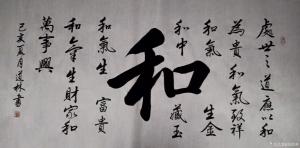 處世之道應以和
為貴和氣致祥
和氣生金
和中藏玉
和
和氣生富貴
和氣生財家和
萬事興
己亥夏月道林書